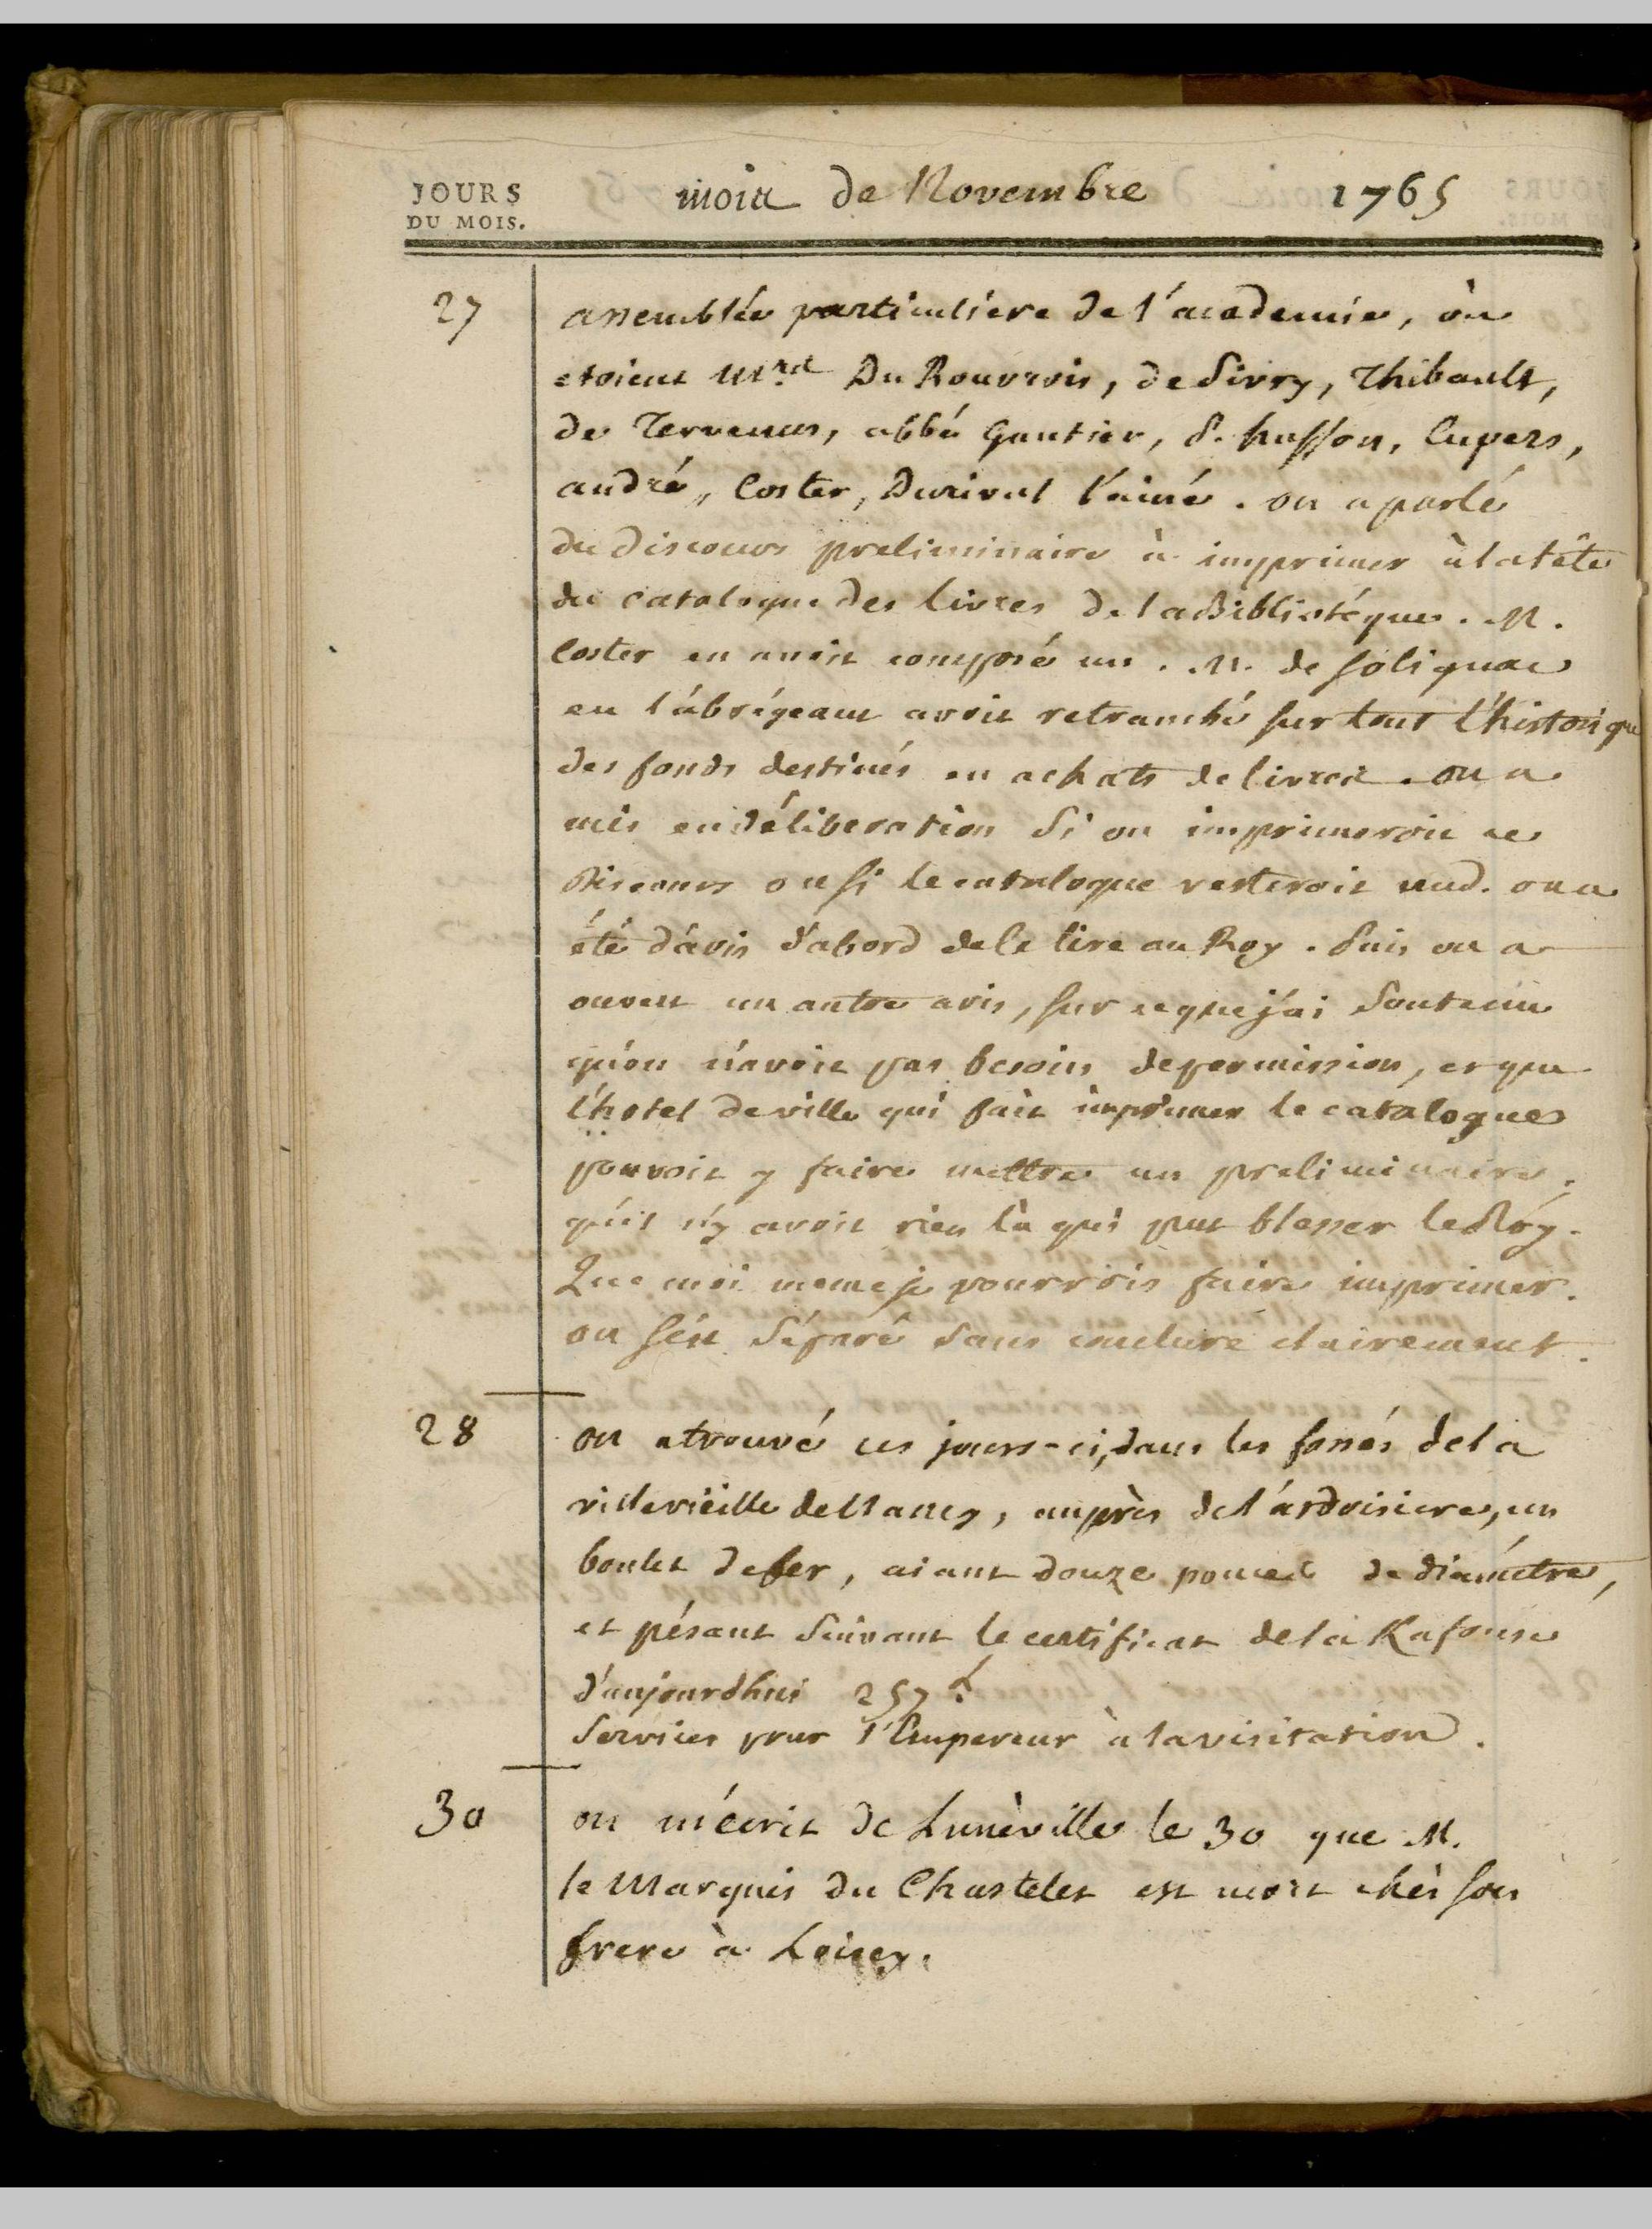 JOURS
DU MOIS.
mois de Novembre 1765
27
assemblée particuliere de l'academie, où
etoient Mrs. Du Rouvrois, de Sivry, Thibault,
de Tervenus, abbé Gautier, P. husson, Cupers,
andré, Coster, Durival l'ainé. on a parlé
du discours preliminaire à imprimer à la tête
du catalogue des livres de la Bibliotéque. M.
Coster en avoit composé un. M. de Solignac
en l'abrégeant avoit retranché sur tout l'historique
des fonds destinés en achats de livres. on a
mis en déliberation si on imprimeroit ce
Discours ou si le catalogue resteroit nud. on a
été d'avis d'abord de le lire au Roy. Puis on a
ouvert un autre avis, sur ce que j'ai soutenu
qu'on n'avoit pas besoin de permission, et que
l'hotel de ville qui fait imprimer le catalogue
pouvoit y faire mettre un preliminaire.
qu'il n'y avoit rien là qui put blesser le Roy.
Que moi meme je pourrois faire imprimer.
on s'est séparé sans conclure clairement.
28
on a trouvé ces jours-ci, dans les fossés de la
ville vieille de Nancy, auprès de l'ardoisiere, un
boulet de fer, aiant douze pouces de diamétre,
et pésant suivant le certificat de la Kafouse
d'aujourdhui 257 l.
Services pour l'Empereur à la visitation.
30
on m'écrit de Lunéville le 30 que M.
le Marquis du Chastelet est mort chés son
frere à Loisey.